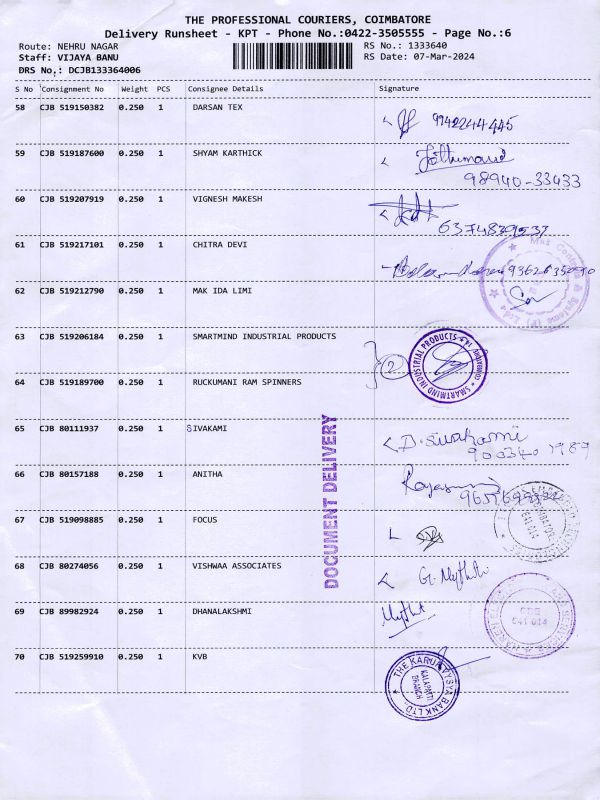 THE PROFESSIONAL COURIERS, COIMBATORE
Delivery Runsheet - KPT - Phone No.:0422-3505555 - Page No.:6
Route: NEHRU NAGAR RS No.: 1333640
Staff: VIJAYA BANU RS Date: 07-Mar-2024
DRS No.: DCJB133364006
S No Consignment No Weight PCS Consignee Details Signature
58 CJB 519150382 0.250 1 DARSAN TEX
9942244445
59 CJB 519187600 0.250 1 SHYAM KARTHICK
98940-33433
60 CJB 519207919 0.250 1 VIGNESH MAKESH
61 CJB 519217101 0.250 1 CHITRA DEVI
62 CJB 519212790 0.250 1 MAK IDA LIMI
63 CJB 519206184 0.250 1 SMARTMIND INDUSTRIAL PRODUCTS
2
SMARTMIND INDUSTRIAL PRODUCTS
64 CJB 519189700 0.250 1 RUCKUMANI RAM SPINNERS
65 CJB 80111937 0.250 1 SIVAKAMI
D. Sivakami
66 CJB 80157188 0.250 1 ANITHA
67 CJB 519098885 0.250 1 FOCUS
68 CJB 80274056 0.250 1 VISHWAA ASSOCIATES
69 CJB 89982924 0.250 1 DHANALAKSHMI
641 014
70 CJB 519259910 0.250 1 KVB
THE KARUR VYSYA BANK LTD.
KALAPATTI
BRANCH
DOCUMENT DELIVERY